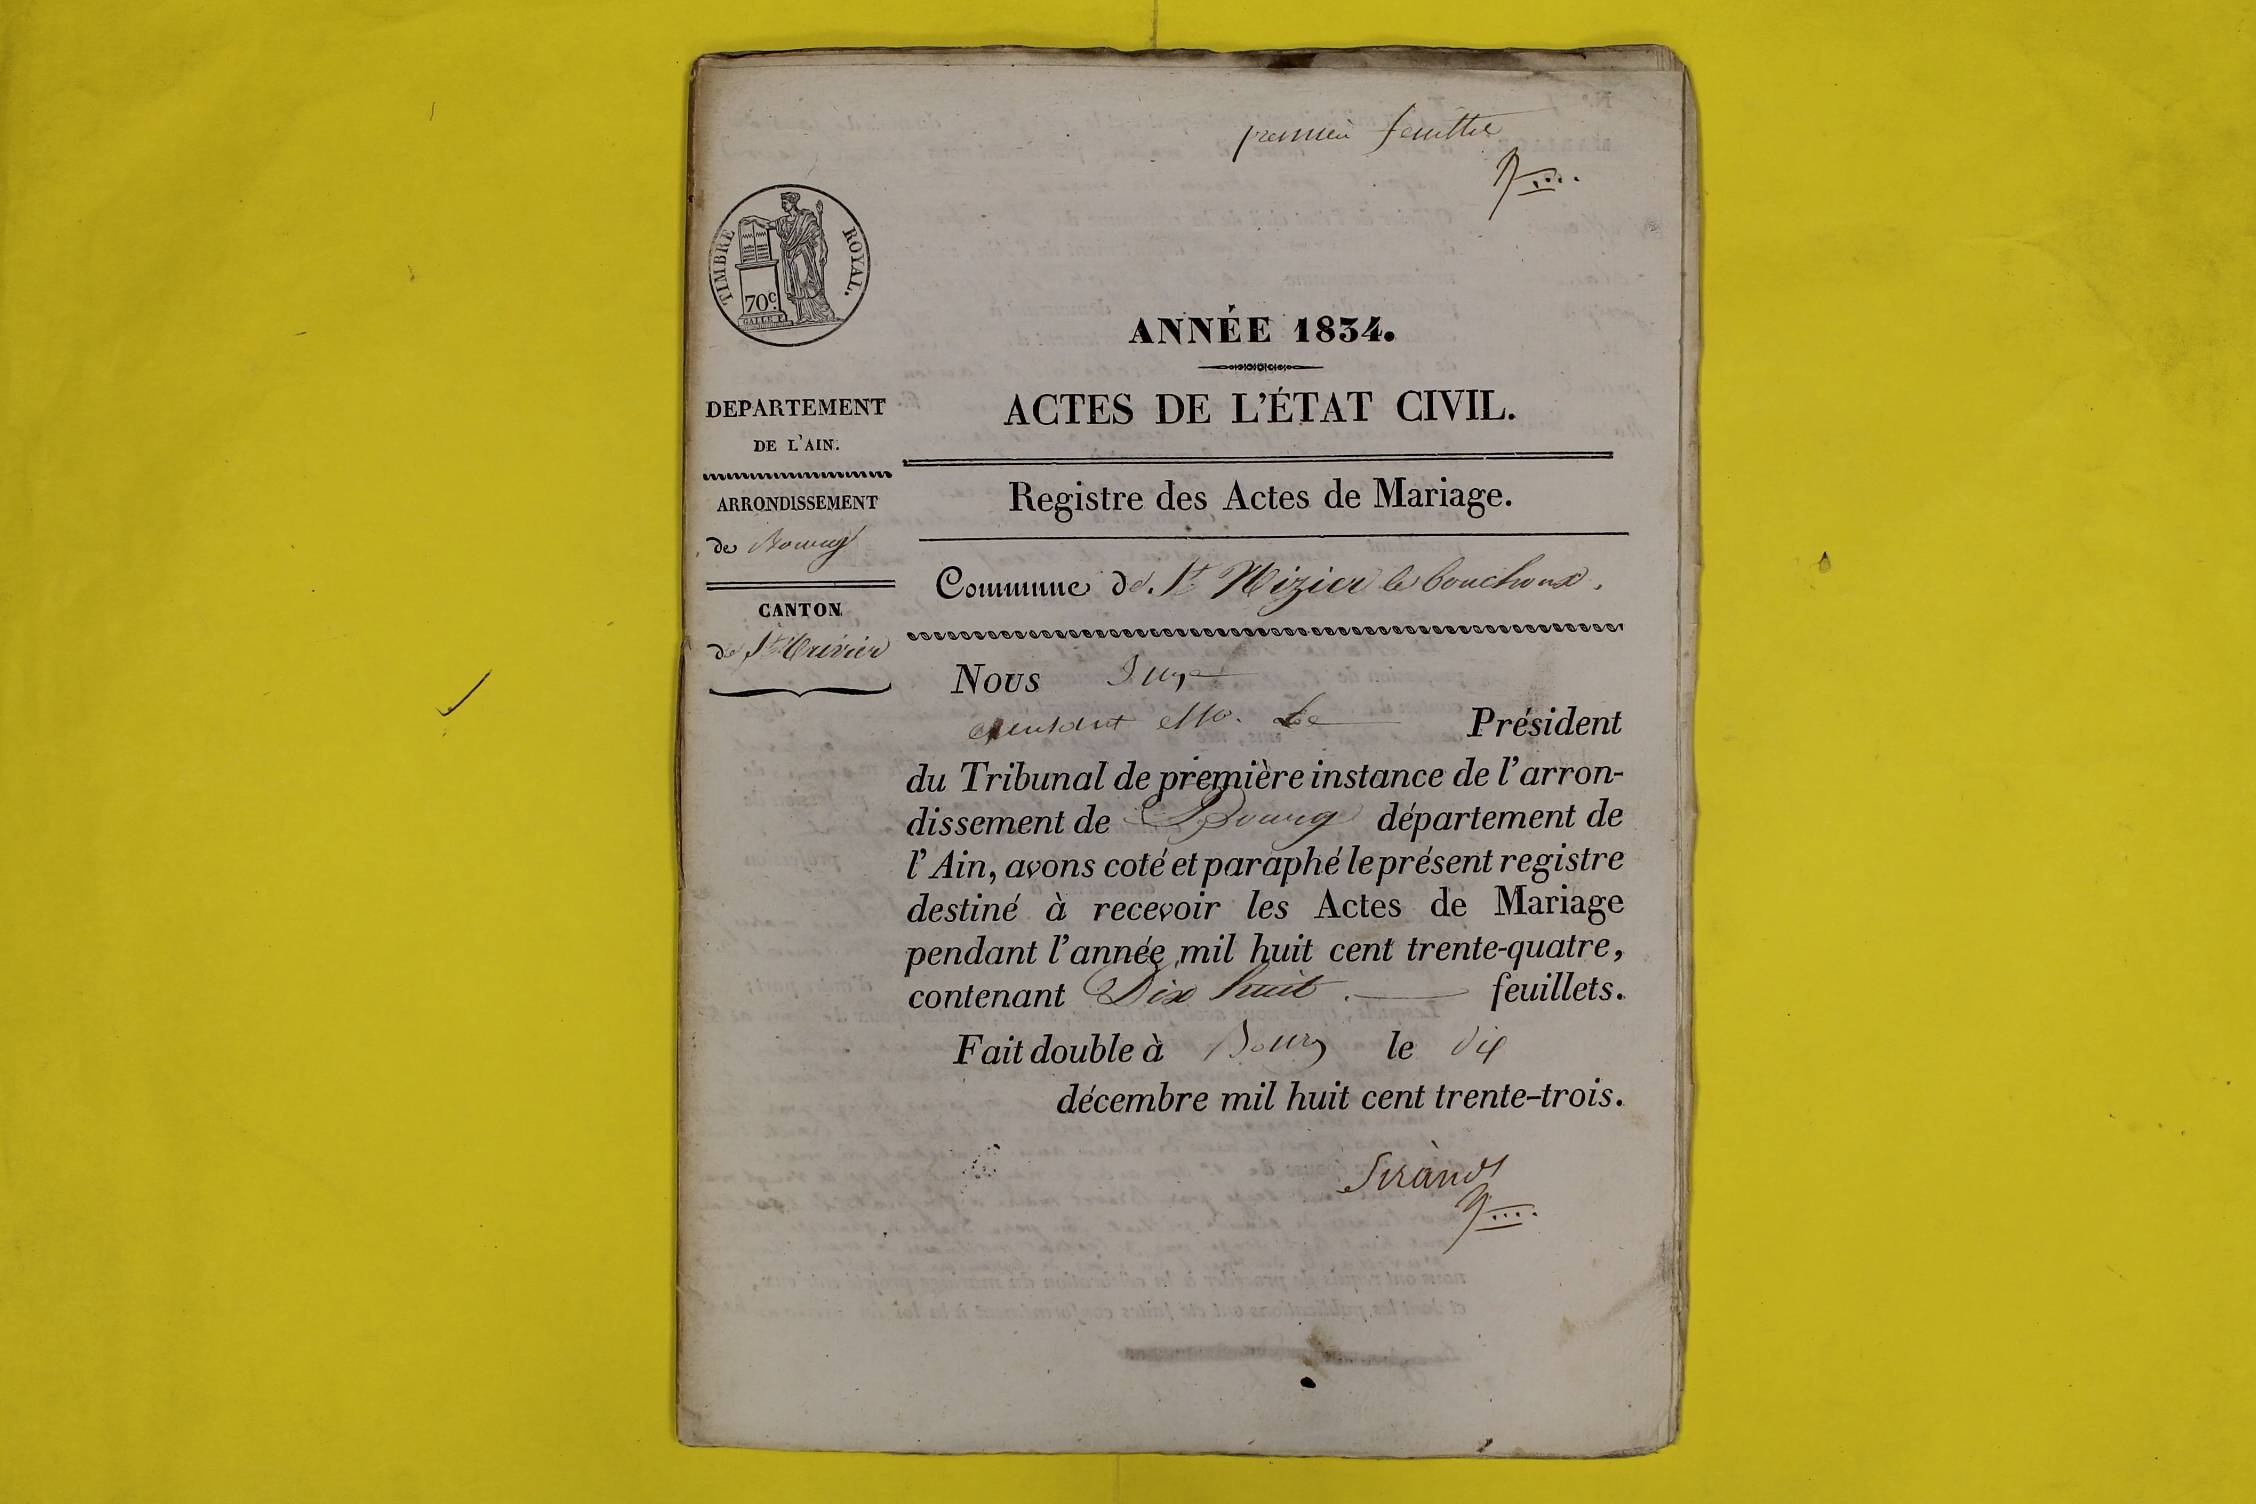 premier feuillet
TIMBRE ROYAL.
70c.
GALLE F.
ANNÉE 1834.
ACTES DE L'ÉTAT CIVIL.
Registre des Actes de Mariage.
DEPARTEMENT
DE L'AIN.
ARRONDISSEMENT
de Bourg
CANTON
de St Trivier
Commune de St Nizier le bouchoux.
Nous Juge
le Président
du Tribunal de première instance de l'arron-
dissement de Bourg département de
l'Ain, avons coté et paraphé le présent registre
destiné à recevoir les Actes de Mariage
pendant l'année mil huit cent trente-quatre,
contenant Dix huit feuillets.
Fait double à Bourg le dix
décembre mil huit cent trente-trois.